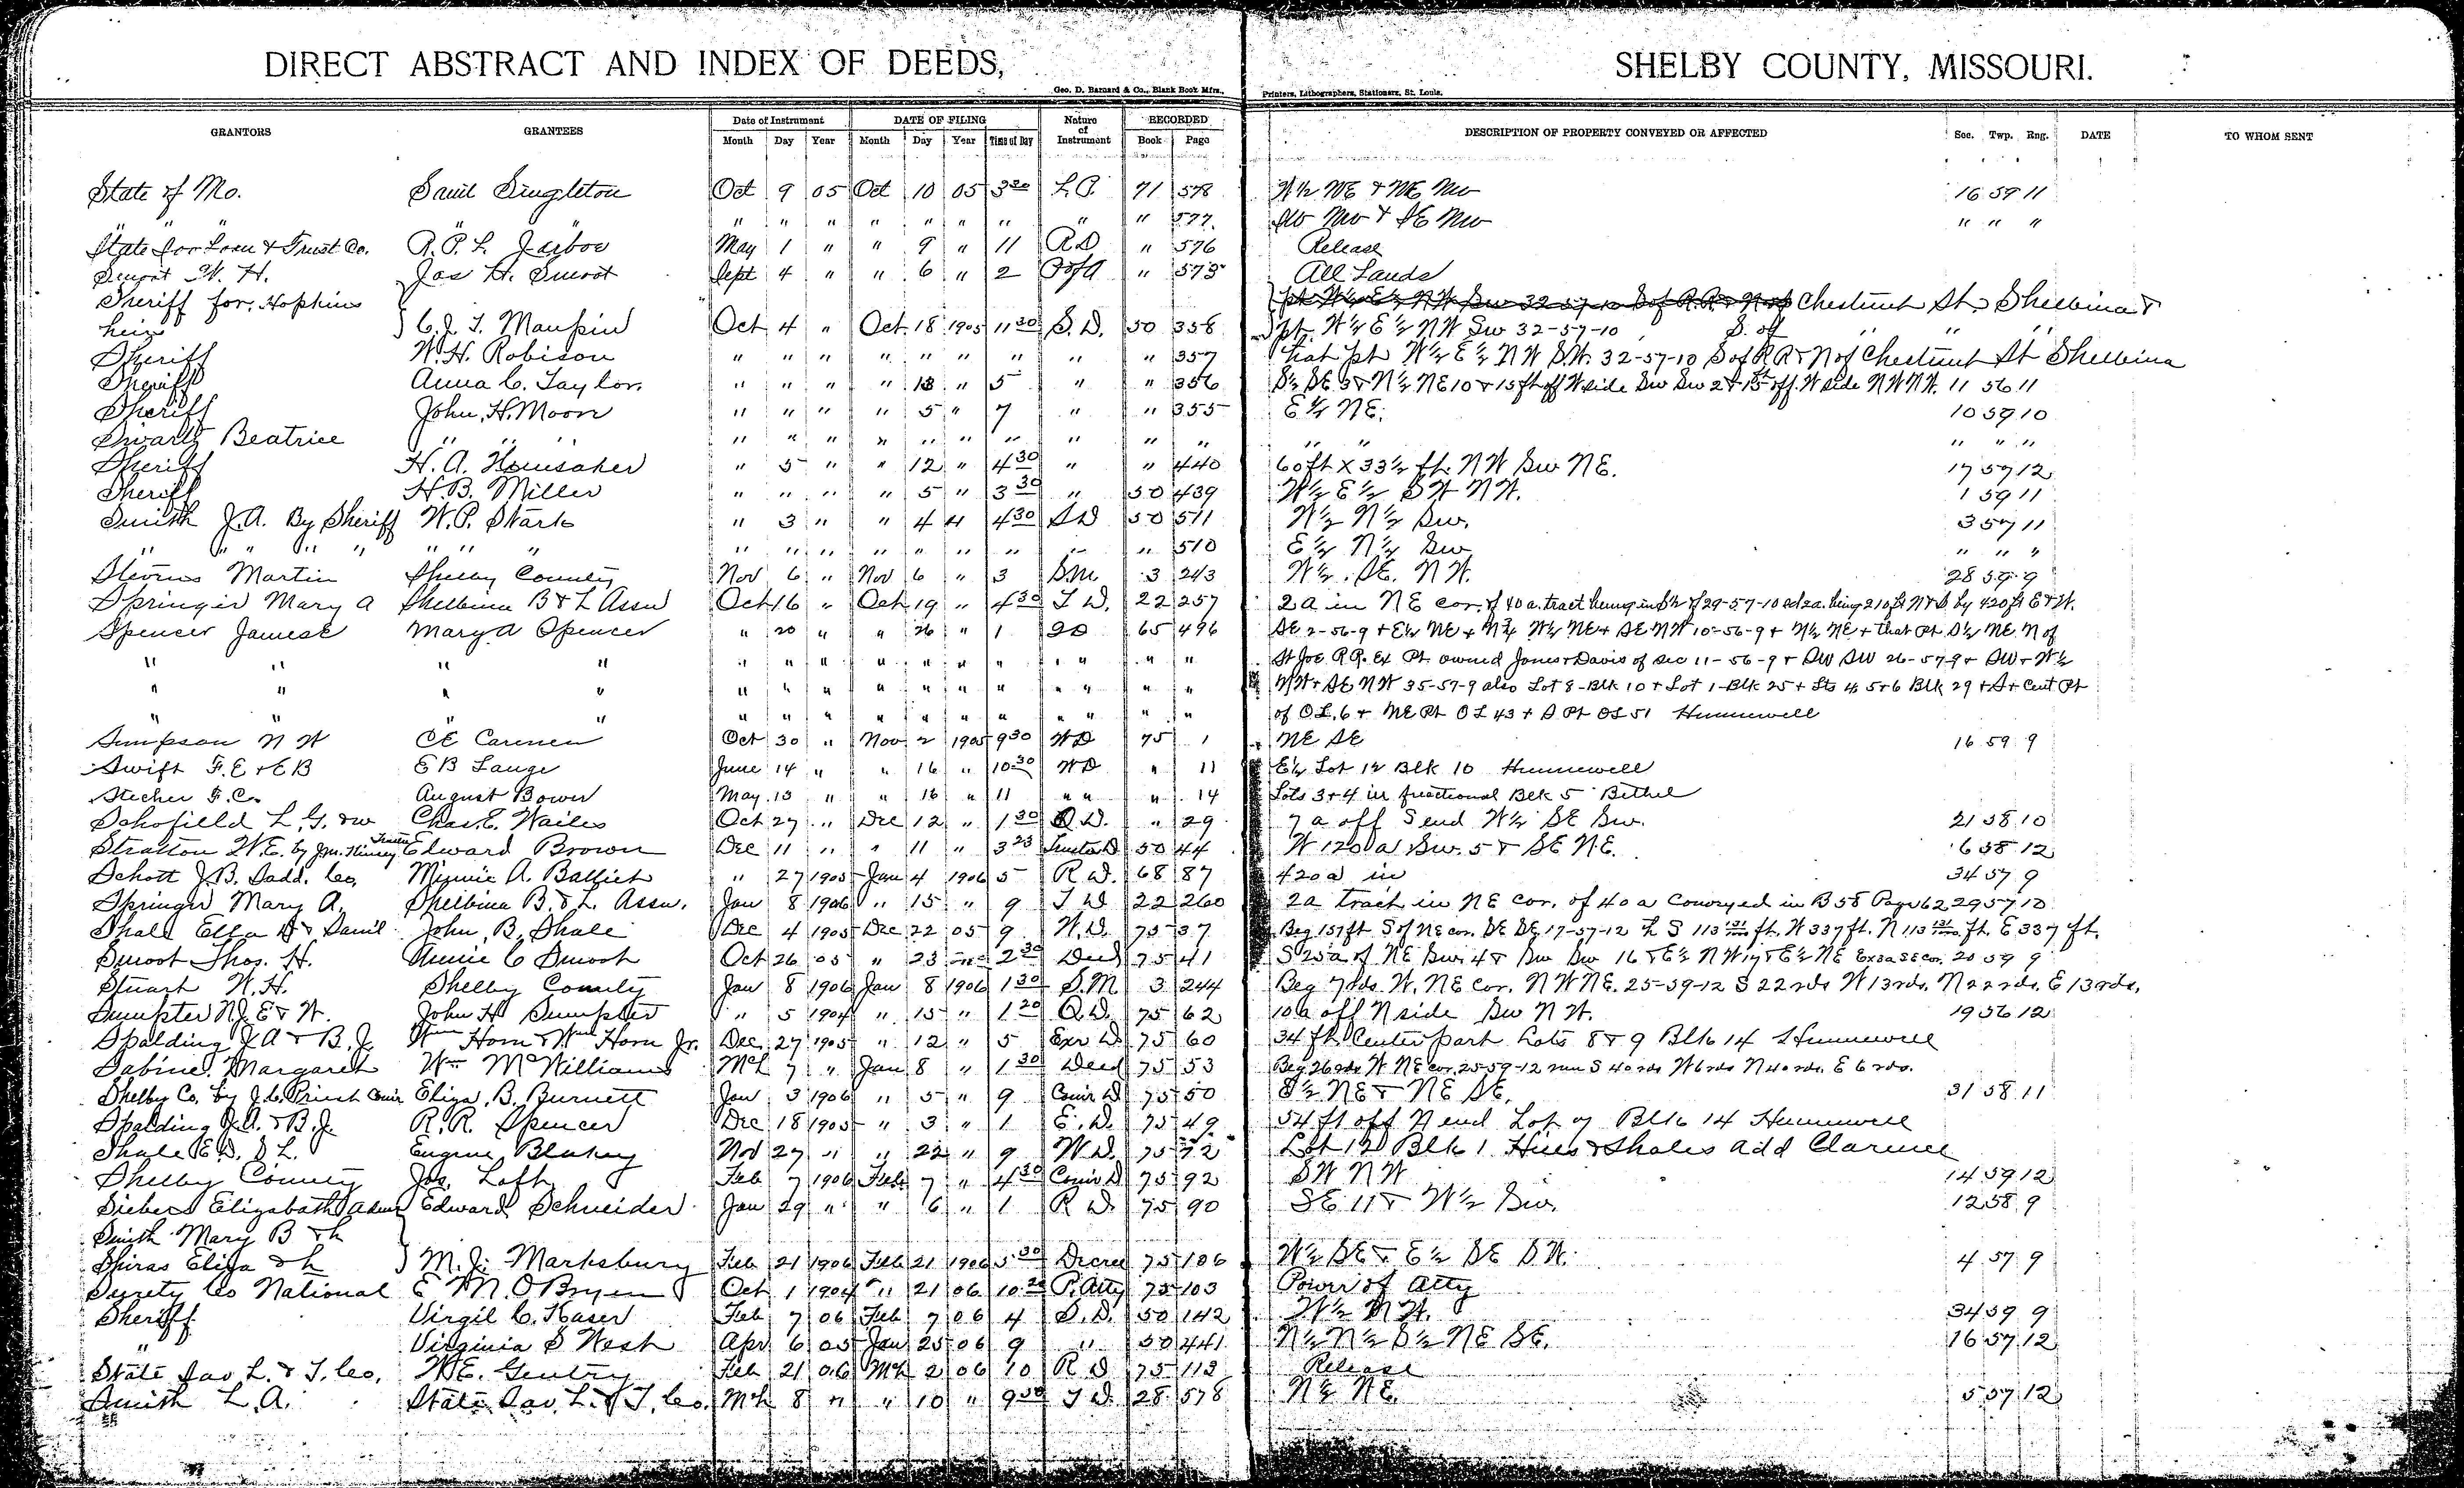 DIRECT ABSTRACT AND INDEX OF DEEDS, SHELBY COUNTY, MISSOURI.
Geo. D. Barnard & Co., Blank Book Mfrs., Printers, Lithographers, Stationers, St. Louis.
GRANTORS GRANTEES Date of Instrument DATE OF FILING Nature of Instrument RECORDED DESCRIPTION OF PROPERTY CONVEYED OR AFFECTED Sec. Twp. Rng. DATE TO WHOM SENT
Month Day Year Month Day Year Time of Day Book Page
State of Mo. Saml Singleton Oct 9 05 Oct 10 05 3 30 L.P. 71 578 W½ NE & NE NW 16 59 11
" " " " " " " " " " " " 577 SW NW & SE NW " " "
State Sav Loan & Trust Co. R.P.L. Jarboe May 1 " " 9 " 11 RD " 576 Release
Smoot W. H. Jas H. Smoot Sept 4 " " 6 " 2 P of A " 573 All Lands
Sheriff for. Hopkins pt W½ E½ NW SW 32-57-10 S of R.R. & N of Chestnut St. Shelbina &
heirs } C.J. T. Maupin Oct 4 " Oct. 18 1905 11 30 S. D. 50 358 pt. W½ E½ NW SW 32-57-10, S. of " " "
Sheriff W.H. Robison " " " " " " " " " 357 that pt W½ E½ NW S.W. 32-57-10 S of R R & N of Chestnut St Shelbina
Sheriff Anna C. Taylor. " " " " 18 " 5 " " 356 S½ SE 3 & N½ NE 10 & 15 ft off W side SW SW 2 & 15 ft off W side NW NW. 11 56 11
Sheriff John, H. Moon " " " " 5 " 7 " " 355 E½ NE. 10 59 10
Swartz Beatrice " " " " " " " " " " " " " " " " " "
Sheriff H. A. Hunsaker " 5 " " 12 " 4 30 " " 440 60 ft X 33½ ft. NW SW NE. 17 57 12
Sheriff H.B. Miller " " " " 5 " 3 30 " 50 439 W½ E½ SW NW. 1 59 11
Smith J.A. By Sheriff W.P. Starks " 3 " " 4 " 4 30 SD 50 511 W½ N½ SW. 3 57 11
" " " " " " " " " " " " " " " " " 510 E½ N½ SW " " "
Stevens Martin Shelby County Nov 6 " Nov 6 " 3 S.M. 3 243 W½. SE. NW. 28 59 9
Springer Mary A Shelbina B & L Assn Oct 16 " Oct 19 " 4 30 T D. 22 257 2 a in NE cor. of 40 a. tract being in S½ of 29-57-10 sd 2a. being 210 ft N & S by 420 ft E & W.
Spencer James E Mary A Spencer " 20 " " 26 " 1 QD 65 496 SE 2-56-9 + E½ NE + N¾ W½ NE + SE NW 10-56-9 + N½ NE + that Pt S½ NE N of
" " " " " " " " " " " " " " " St Joe R.R. Ex Pt owned Jones & Davis of Sec 11-56-9 + SW SW 26-57-9 + SW + W½
" " " " " " " " " " " " " " " NW + SE NW 35-57-9 also Lot 8-Blk 10 + Lot 1-Blk 25 + Lts 4 5+6 Blk 29 + S + Cent Pt
" " " " " " " " " " " " " " " of O L. 6 + NE Pt O L 43 + S Pt OL 51 Hunnewell
Simpson N W CE Carmen Oct 30 " Nov 2 1905 9 30 WD 75 1 NE SE 16 59 9
Swift F. E & E B E B Lange June 14 " " 16 " 10 30 WD " 11 E½ Lot 12 Blk 10 Hunnewell
Stecher F. C. August Bower May 13 " " 16 " 11 " " " 14 Lots 3+4 in fractional Blk 5 Bethel
Schofield L. G. & w Chas. E. Wailes Oct 27 " Dec 12 " 1 30 Q.D. " 29 7 a off S end W½ SE SW. 21 58 10
Stratton W.E. by Jm. Trustee Edward Brown Dec 11 " " 11 " 3 25 Trustee D 50 44 W 120 a SW. 5 & SE NE. 6 58 12
Schott J.B. Sadd. Co. Minnie A. " 27 1905 Jan 4 1906 5 R. D. 68 87 420 a in 34 57 9
Springer Mary A. Shelbina B. & L. Assn. Jan 8 1906 " 15 " 9 T D 22 260 2a tract in NE cor. of 40 a Conveyed in B 58 Page 62 29 57 10
Shale Ella D & Daniel John, B. Shale Dec 4 1905 Dec 22 05 9 W. D. 75 37 Beg 157 ft S of NE cor. SE SE, 17-57-12 Th S 113 ft. W 337 ft. N 113 ft. E 337 ft.
Smoot Thos. H. Annie C Smoot Oct 26 05 " 23 2 30 Deed 75 41 S 25 a of NE SW. 4 & SW SW 16 & E½ NW 17 & E½ NE Ex 5 a SE cor. 20 59 9
Stuart W. H. Shelby County Jan 8 1906 Jan 8 1906 1 30 S.M. 3 244 Beg 7 rds. W. NE cor. NW NE. 25-59-12 S 22 rds W 13 rds. N 22 rds. E 13 rds.
Sumpter N.J. E & W. John H Sumpter " 5 1904 " 15 " 1 20 Q.D. 75 62 10 a off N side SW NW. 19 56 12
Spalding J A & B. J. Wm Horn & Wm Horn Jr. Dec. 27 1905 " 12 " 5 Exr D 75 60 34 ft Center part Lots 8 & 9 Blk 14 Hunnewell
Sabine Margaret Wm McWilliams Mch 7 " Jan 8 " 1 30 Deed 75 53 Beg 26 rds W NE cor, 25-59-12 run S 40 rds W 6 rds N 40 rds. E 6 rds.
Shelby Co. by J.C. Priest Comr Eliza. B. Burnett Jan 3 1906 " 5 " 9 Comr D 75 50 S½ NE & NE SE. 31 58 11
Spalding J.A. & B.J. R.R. Spencer Dec 18 1905 " 3 " 1 E. D. 75 49 54 ft off N end Lot 7 Blk 14 Hunnewell
Shale E. D. & L. Eugene Blakey Nov 27 " " 22 " 9 W.D. 75 72 Lot 12 Blk 1 Hines & Shales add Clarence
Shelby County Jos. Loft Feb 7 1906 Feb 7 " 4 30 Comr D 75 92 SW NW 14 59 12
Siebers Elizabeth Edward Schneider Jan 29 " " 6 " 1 R D. 75 90 SE 11 & W½ SW. 12 58 9
Smith Mary B & h
Spiras Eliza & h } M. J. Marksbury Feb 21 1906 Feb 21 1906 5 30 Decree 75 106 W½ SE & E½ SE SW. 4 57 9
Surety Co National E M. OBryen Oct 1 1904 " 21 06 10 20 P. Atty 75 103 Power of Atty
Sheriff Virgil C. Kaser Feb 7 06 Feb 7 06 4 S. D. 50 142 W½ NW. 34 59 9
" Virginia S West Apr 6 05 Jan 25 06 9 " 50 441 N½ N½ S½ NE SE. 16 57 12
State Sav L. & T. Co. W.E. Gentry Feb 21 06 Mch 2 06 10 R D 75 112 Release
Smith L. A. State Sav. L. & T. Co. Mch 8 " " 10 " 9 30 T D. 28 578 N½ NE. 5 57 12